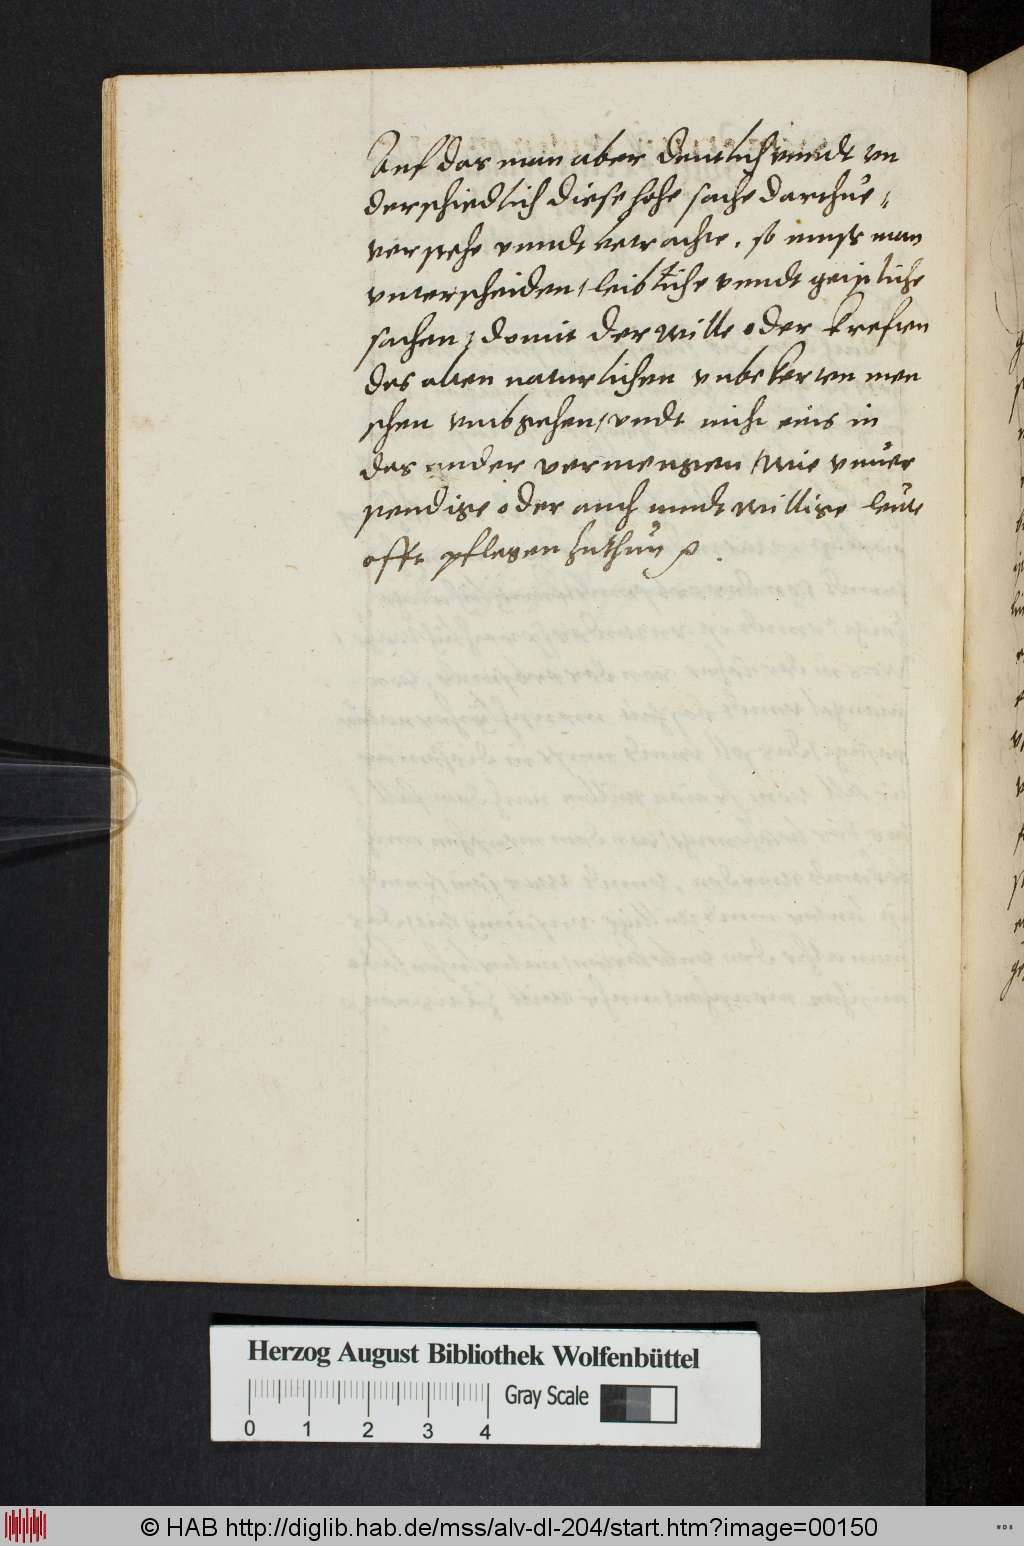 Auf das man aber deutlich unndt un
derschiedlich diese hohe sache darthue,
verstehe unndt betrachte, so muss man
unterscheiden, leibliche unndt geistliche
sachen, domit der wille oder kreften
des alten naturlichen unbekerten men
schen umbgehen, undt nicht eins in
das ander vermengen, wie unver
stendige oder auch mudtwillige leute
offt pflegen zuthun
Herzog August Bibliothek Wolfenbüttel
Gray Scale
0 1 2 3 4
© HAB http://diglib.hab.de/mss/alv-dl-204/start.htm?image=00150